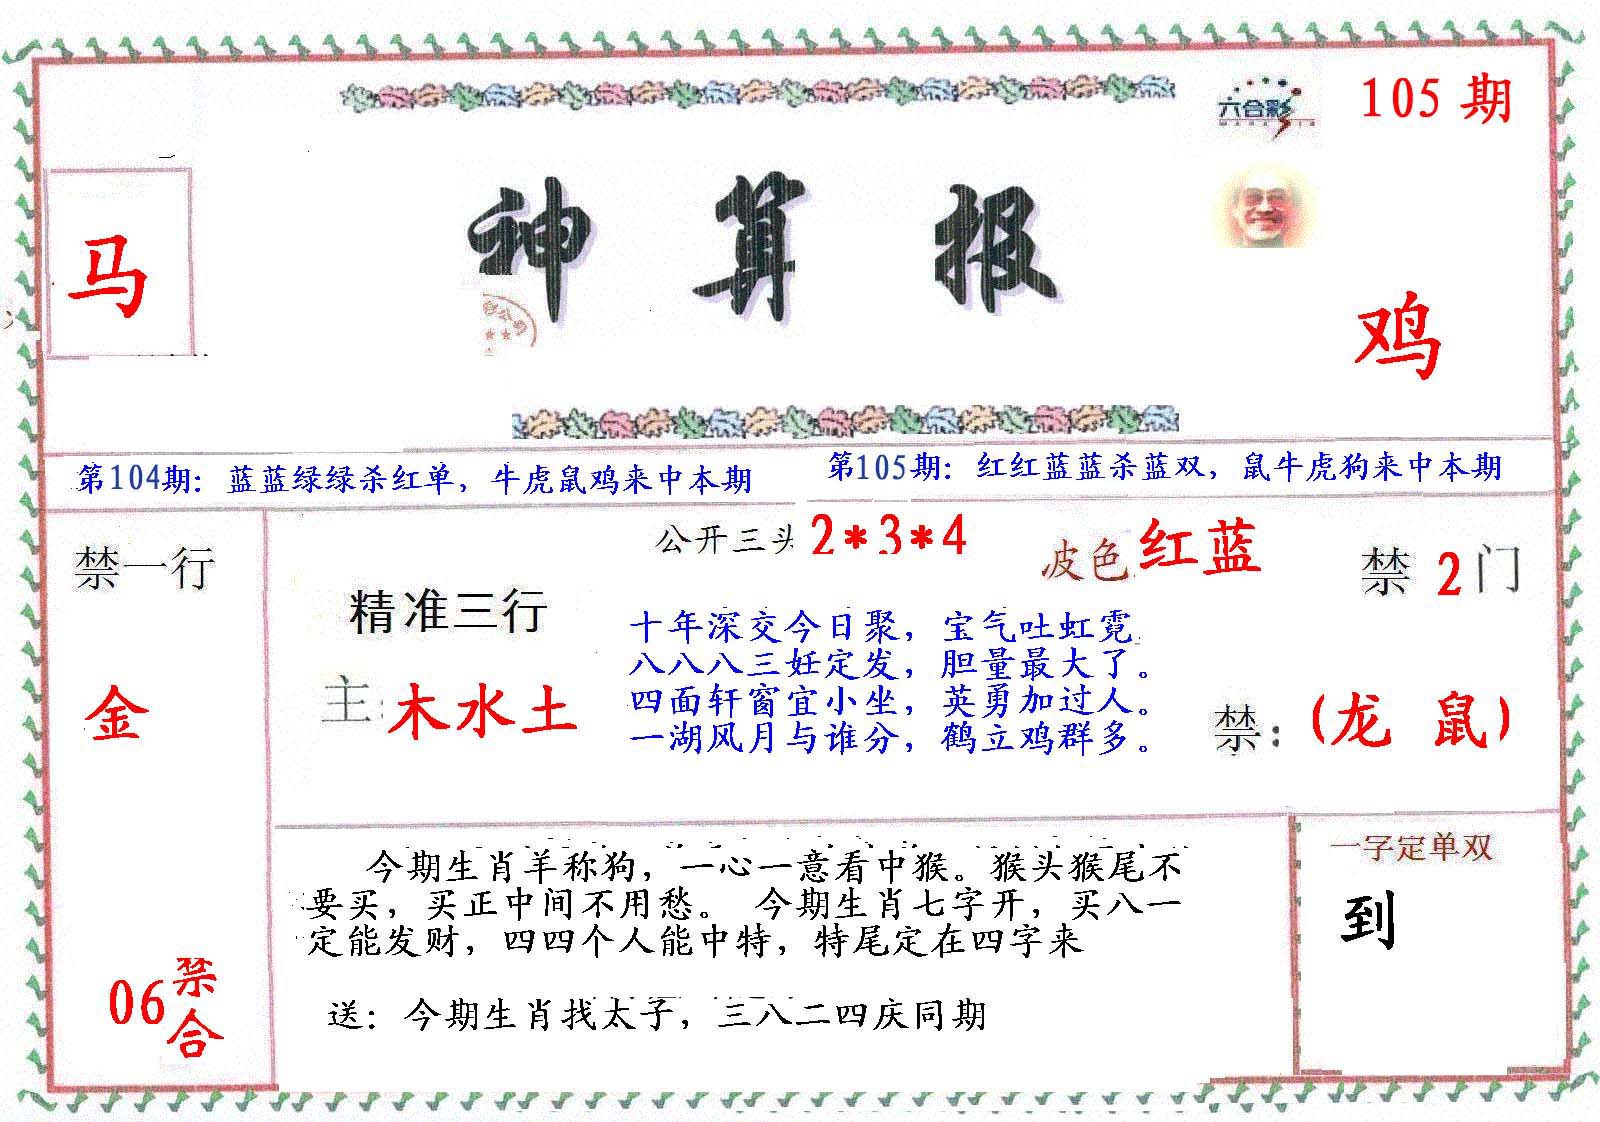 六合彩
105 期
马
神算报
鸡
第104期：蓝蓝绿绿杀红单，牛虎鼠鸡来中本期
第105期：红红蓝蓝杀蓝双，鼠牛虎狗来中本期
禁一行
金
06禁合
公开三头 2*3*4
波色 红蓝
禁 2 门
精准三行
主：木水土
十年深交今日聚，宝气吐虹霓
八八八三妊定发，胆量最大了。
四面轩窗宜小坐，英勇加过人。
一湖风月与谁分，鹤立鸡群多。
禁：（龙 鼠）
今期生肖羊称狗，一心一意看中猴。猴头猴尾不
要买，买正中间不用愁。 今期生肖七字开，买八一
定能发财，四四个人能中特，特尾定在四字来
送：今期生肖找太子，三八二四庆同期
一字定单双
到